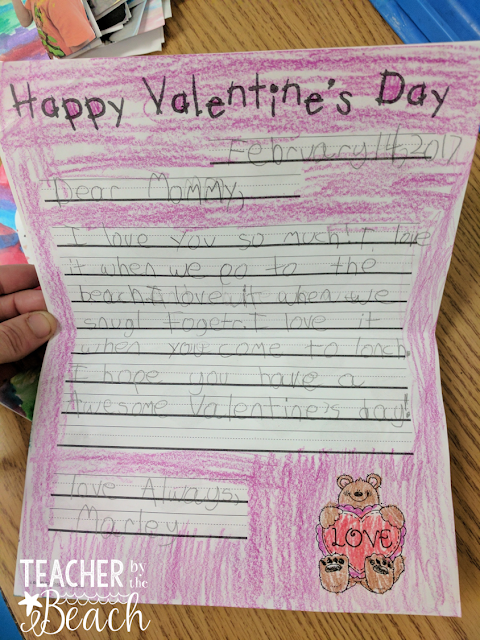 Happy Valentine's Day
February 14, 2017
Dear Mommy,
I love you so much! I love
it when we go to the
beach. I love it when we
snugl togetr. I love it
when you come to lonch.
I hope you have a
Awesome Valentine's day!
love Always,
Marley
LOVE
TEACHER by the Beach